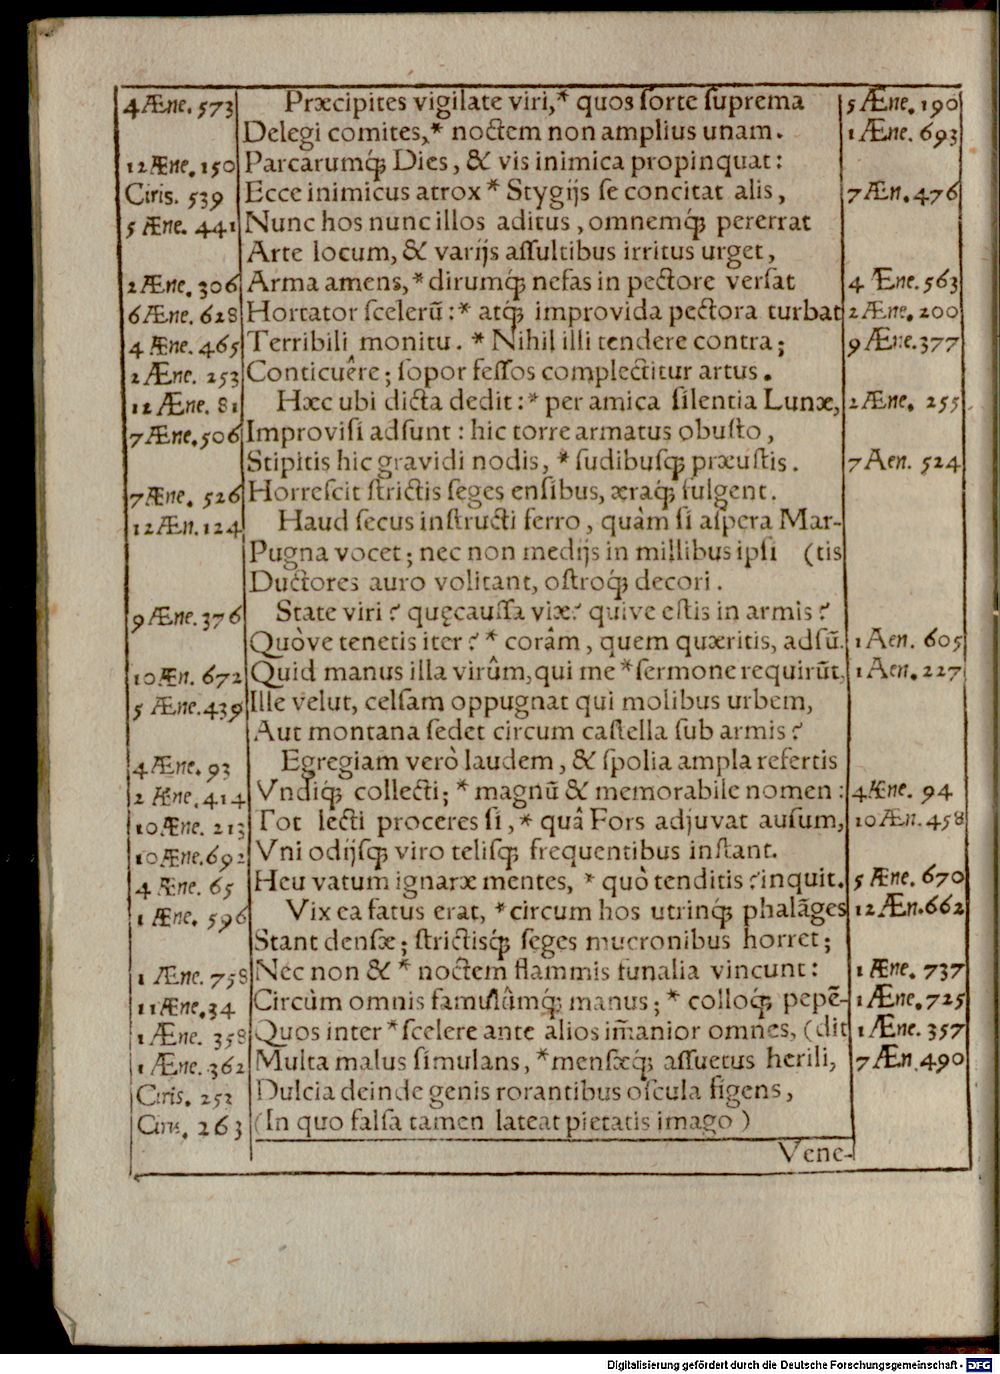 4 Æne. 573 Præcipites vigilate viri,* quos ſorte ſuprema 5 Æne. 190
Delegi comites,* noctem non amplius unam. 1 Æne. 693
12 Æne. 150 Parcarumq́; Dies, & vis inimica propinquat:
Ciris. 539 Ecce inimicus atrox * Stygijs ſe concitat alis, 7 Æn. 476
5 Æne. 441 Nunc hos nunc illos aditus, omnemq́; pererrat
Arte locum, & varijs aſſultibus irritus urget,
2 Æne. 306 Arma amens,* dirumq́; nefas in pectore verſat 4 Æne. 563
6 Æne. 628 Hortator ſcelerū:* atq́; improvida pectora turbat 2 Æne. 200
4 Æne. 465 Terribili monitu. * Nihil illi tendere contra; 9 Æne. 377
2 Æne. 253 Conticuêre; ſopor feſſos complectitur artus.
12 Æne. 81 Hæc ubi dicta dedit:* per amica ſilentia Lunæ, 2 Æne. 255
7 Æne. 506 Improviſi adſunt: hic torre armatus obuſto,
Stipitis hic gravidi nodis, * ſudibuſq́; præuſtis. 7 Aen. 524
7 Æne. 526 Horreſcit ſtrictis ſeges enſibus, æraq́; fulgent.
12 Æn. 124 Haud ſecus inſtructi ferro, quàm ſi aſpera Mar-
Pugna vocet; nec non medijs in millibus ipſi (tis
Ductores auro volitant, oſtroq́; decori.
9 Æne. 376 State viri? quę cauſſa viæ? quive eſtis in armis?
Quòve tenetis iter? * coràm, quem quæritis, adſū. 1 Aen. 605
10 Æn. 672 Quid manus illa virûm, qui me * ſermone requirūt, 1 Aen. 227
5 Æne. 439 Ille velut, celſam oppugnat qui molibus urbem,
Aut montana ſedet circum caſtella ſub armis?
4 Æne. 93 Egregiam verò laudem, & ſpolia ampla refertis
2 Æne. 414 Vndiq́; collecti; * magnū & memorabile nomen: 4 Æne. 94
10 Æne. 213 Tot lecti proceres ſi,* quâ Fors adjuvat auſum, 10 Æn. 458
10 Æne. 692 Vni odijſq́; viro teliſq́; frequentibus inſtant.
4 Æne. 65 Heu vatum ignaræ mentes, * quò tenditis? inquit. 5 Æne. 670
1 Æne. 596 Vix ea fatus erat, * circum hos utrinq́; phalāges 12 Æn. 662
Stant denſæ; ſtrictiſq́; ſeges mucronibus horret;
1 Æne. 758 Nec non & * noctem flammis funalia vincunt: 1 Æne. 737
11 Æne. 34 Circùm omnis famulûmq́; manus; * colloq́; pepē- 1 Æne. 725
1 Æne. 358 Quos inter * ſcelere ante alios im̄anior omnes, (dit 1 Æne. 357
1 Æne. 362 Multa malus ſimulans, * menſæq́; aſſuetus herili, 7 Æn. 490
Ciris. 252 Dulcia deinde genis rorantibus oſcula figens,
Ciris. 263 (In quo falſa tamen lateat pietatis imago)
Vene-
Digitalisierung gefördert durch die Deutsche Forschungsgemeinschaft - DFG